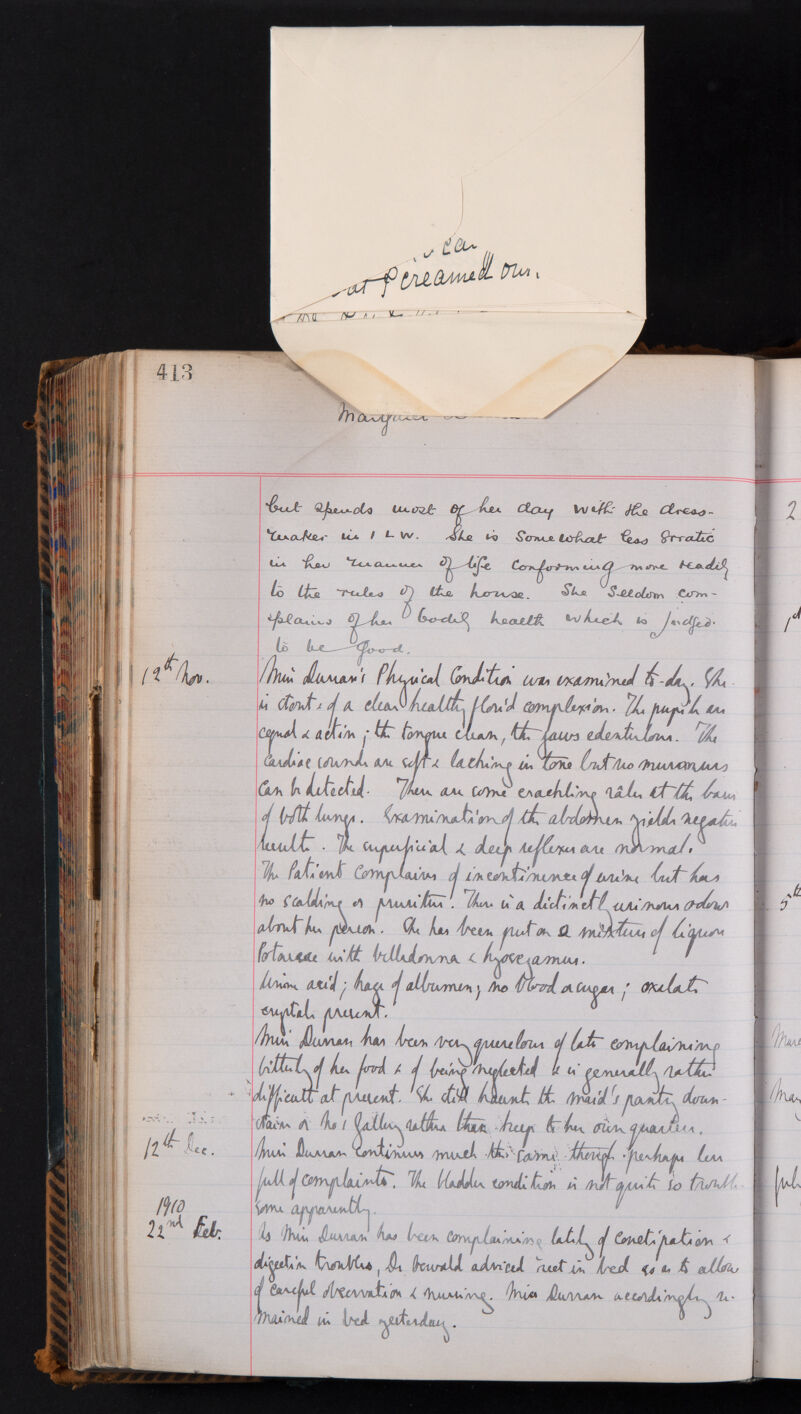 at Screamed our.
413
but spends most of her day with the dress-
maker in 1 L W. She is Somewhat less Erratic
in her manner of life Conforming more readily
to the rules of the house. She Seldom com-
plains of her bodily health which is judged
to be good.
12th Nov. Miss Durran's Physical Condition was examined to-day. She
is stout & of a clear healthy florid complexion. The pupils are
equal & active; the tongue clean, the jaws edentulous. The
Cardiac sounds are soft & lacking in tone but no murmurs
Can be detected. There are some crackling râles at the bases
of both lungs. Examination of the abdomen yields negative
results. The superficial & deep reflexes are normal.
The Patient Complains of incontinence of urine but has
no scalding or pruritus. There is a distinctly urinous odour
about her person. She has been put on a mixture of liquor
Potassae with belladonna & hyoscyamus.
Urine acid; trace of albumen; no blood or sugar; oxalate
crystals present.
Miss Durran has been very querelous of late complaining
bitterly of her food & of being neglected & is generally rather
difficult at present. She still haunts the maid's pantry down-
stairs or No 1 Gallery rather than keep to her own quarters.
12th Dec. Miss Durran Continues much the same though perhaps less
full of complaints. The bladder condition is not quite so trouble-
some apparently.
1910
22nd Feb. As Miss Durran has been complaining lately of constipation &
digestion troubles, Dr Oswald advised rest in bed so as to allow
of careful observation & nursing. Miss Durran accordingly re-
mained in bed yesterday.